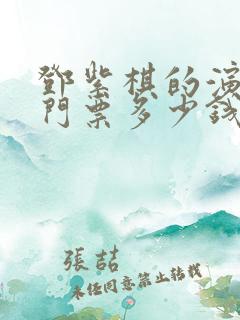 鄧紫棋的演
門票多少錢
張喆
未经同意禁止转载